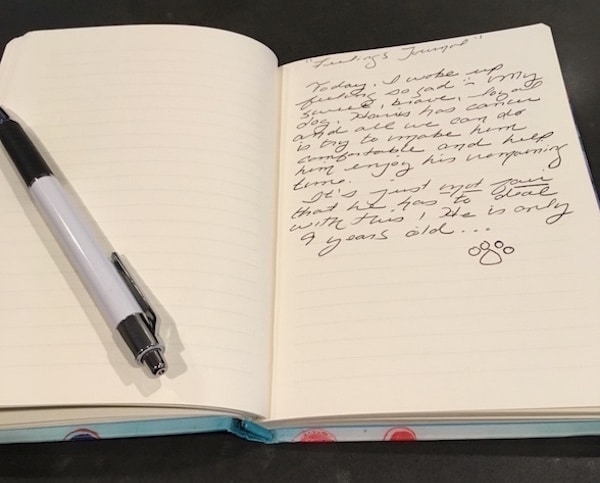 "Feelings Journal"
Today, I woke up
feeling so sad - my
sweet, brave, loyal
dog, Harris has cancer
and all we can do
is try to make him
comfortable and help
him enjoy his remaining
time.
It's just not fair
that he has to deal
with this! He is only
9 years old...